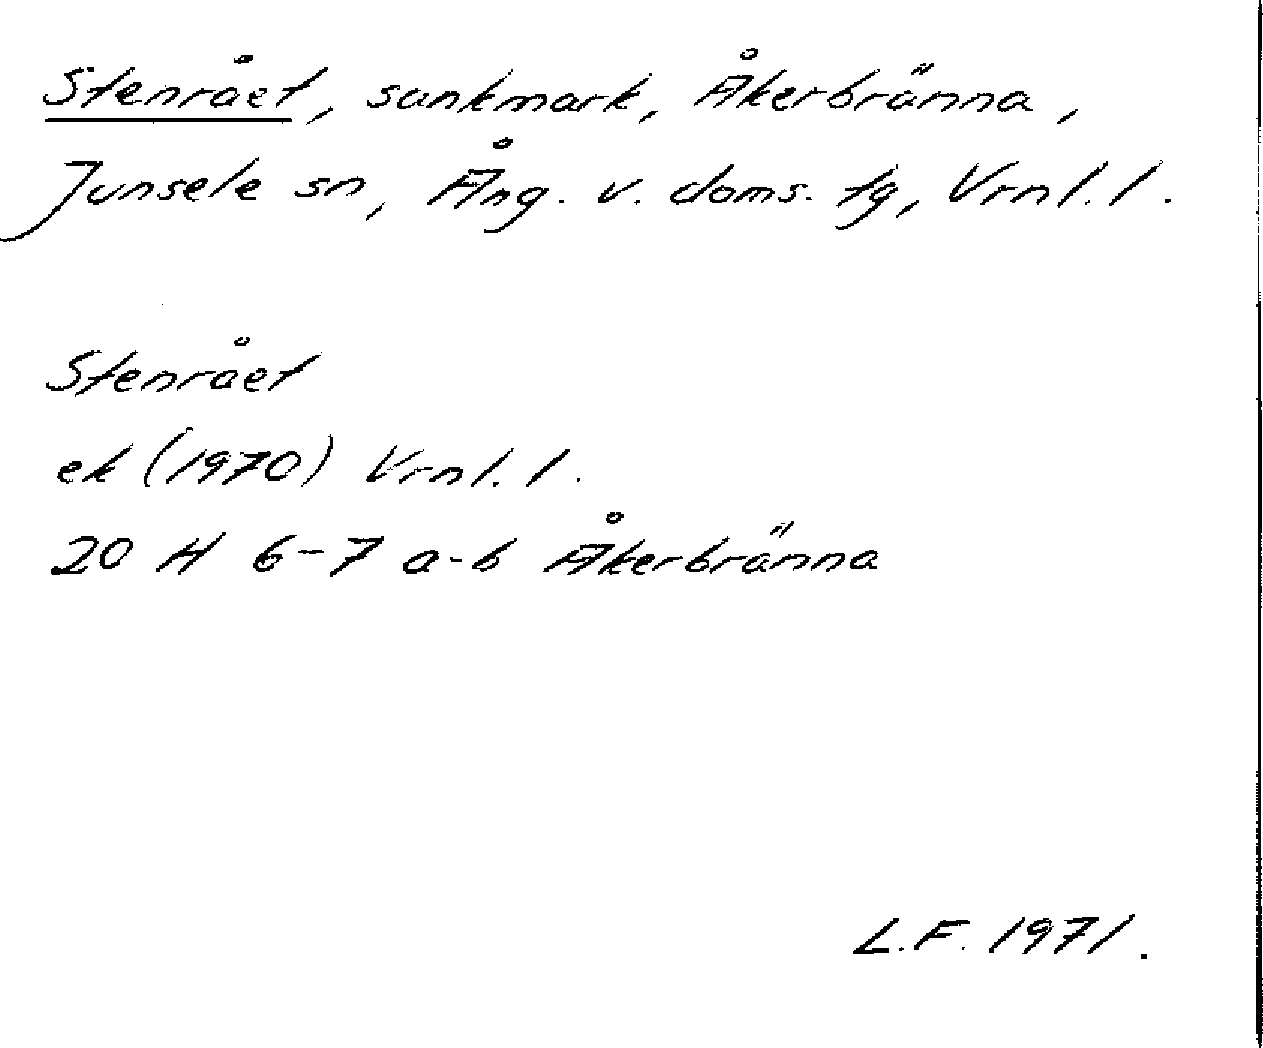 Stenrået, sankmark, Åkerbränna,
Junsele sn, Ång. v. doms. tg, Vrnl. l.
Stenrået
ek (1970) Vrnl. l.
20 H 6-7 a-b Åkerbränna
L.F. 1971.